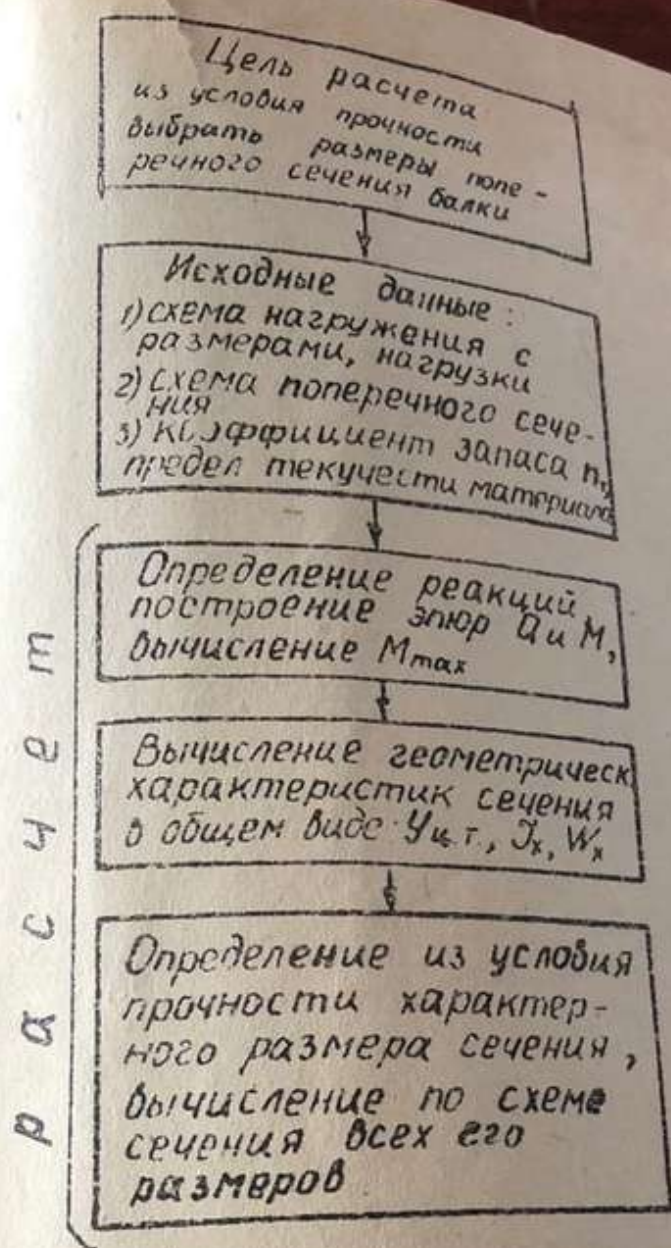 Цель расчета
из условия прочности
выбрать размеры попе-
речного сечения балки
Исходные данные:
1) схема нагружения с
размерами, нагрузки
2) схема поперечного сече-
ния
3) коэффициент запаса n,
предел текучести материала
расчет
Определение реакций,
построение эпюр Q и M,
вычисление Mmax
Вычисление геометрическ
характеристик сечения
в общем виде Yц.т., Jx, Wx
Определение из условия
прочности характер-
ного размера сечения,
вычисление по схеме
сечения всех его
размеров